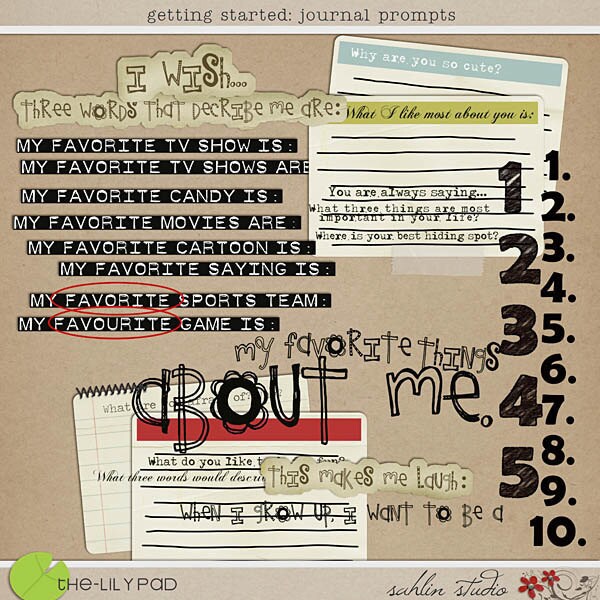 getting started: journal prompts
I WISH...
THREE WORDS THAT DECRIBE ME ARE:
MY FAVORITE TV SHOW IS :
MY FAVORITE TV SHOWS ARE
MY FAVORITE CANDY IS :
MY FAVORITE MOVIES ARE :
MY FAVORITE CARTOON IS :
MY FAVORITE SAYING IS :
MY FAVORITE SPORTS TEAM:
MY FAVOURITE GAME IS :
Why are you so cute?
What I like most about you is:
You are always saying...
What three things are most
important in your life?
Where is your best hiding spot?
1
2
3
4
5
1.
2.
3.
4.
5.
6.
7.
8.
9.
10.
my favorite things
ABOUT me.
What are of?
What do you like fun?
What three words would describ
THIS makes me laugh:
When I grow up, I want to be a
the-LiLYPAD
sahlin studio